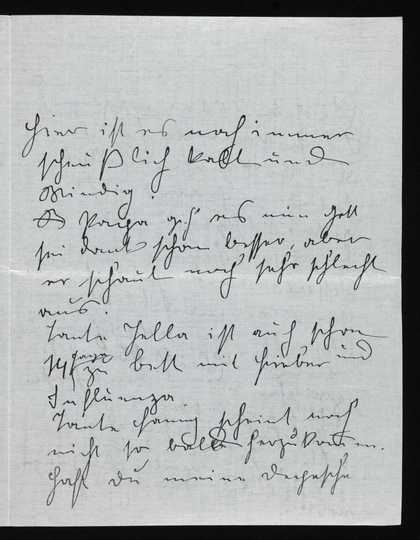 Hier ist es noch immer
scheußlich kalt und
Windig.
Papa geht es nun Gott
sei dank schon besser, aber
er schaut noch sehr schlecht
aus.
Tante Jella ist auch schon
zu bett mit fieber und
Influenza.
Tante Fanny scheint noch
nicht so bald herzukommen.
Hast du meine Depesche